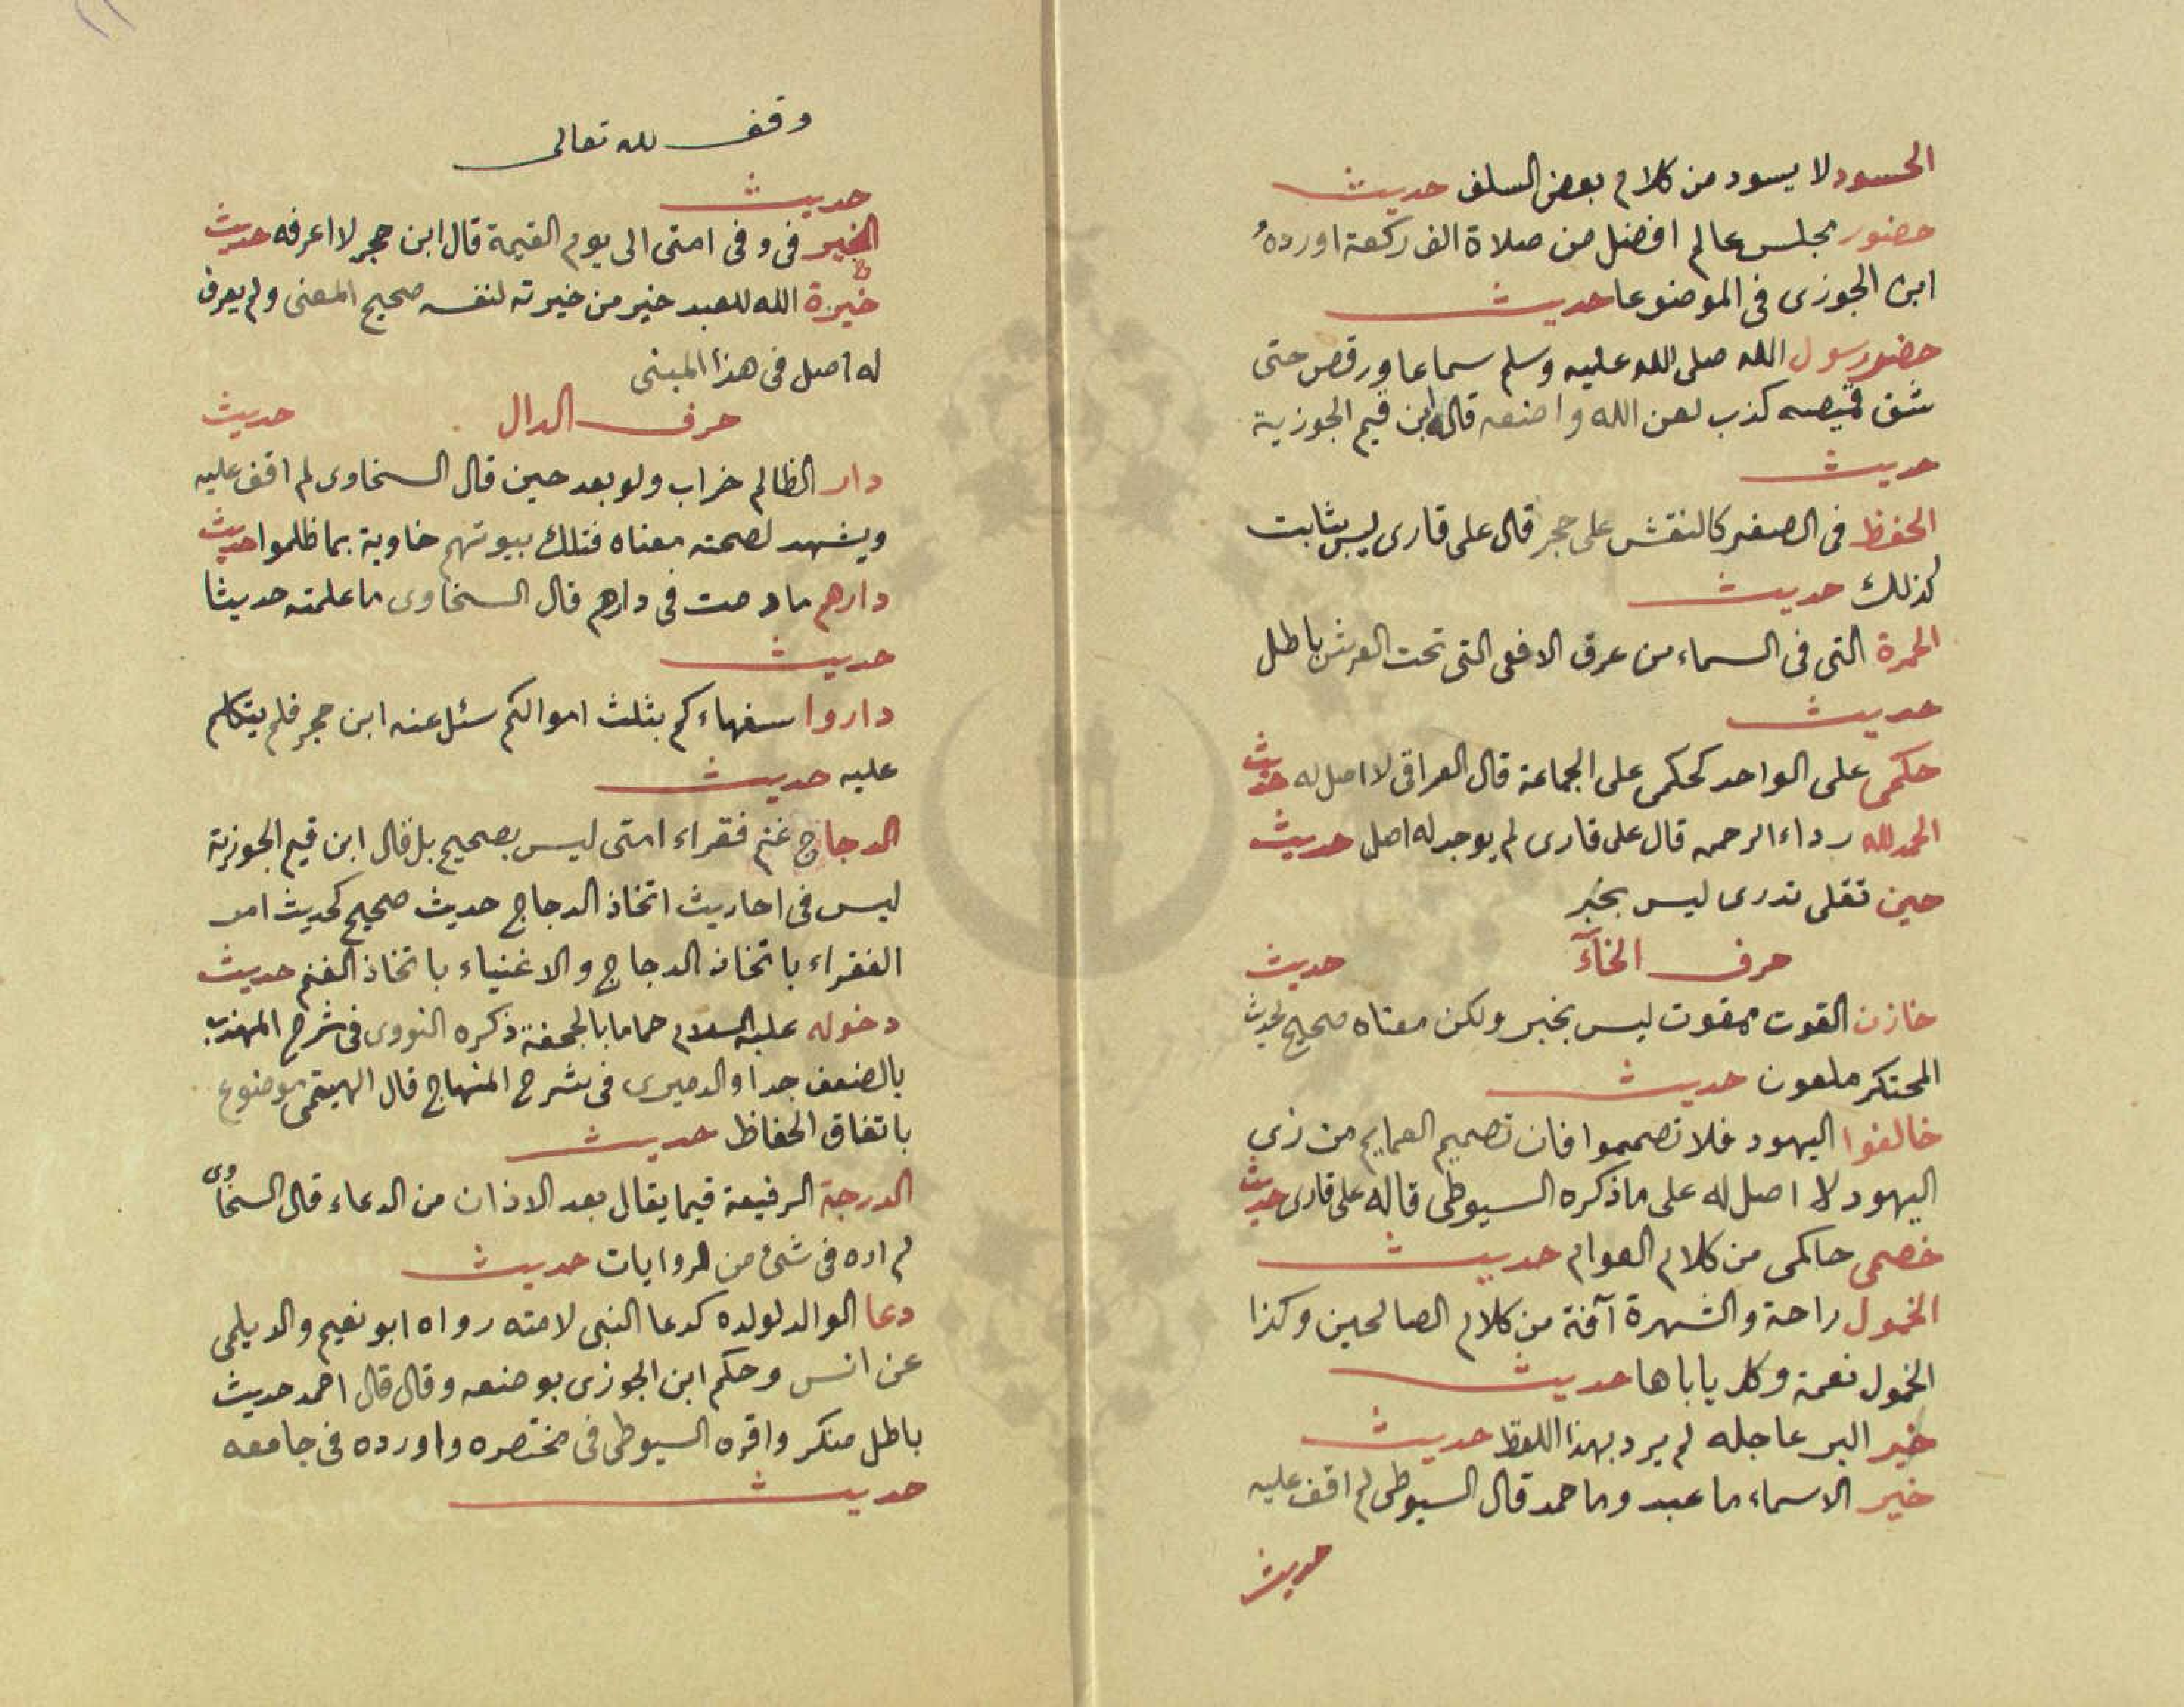 الحسود لا يسود من كلام بعض السلف حديث
حضور مجلس عالم افضل من صلاة الف ركعة اورده
ابن الجوزى فى الموضوعا حديث
حضور رسول الله صلى الله عليه وسلم سماعا ورقص حتى
شق قميصه كذب لعن الله واضعه قاله ابن قيم الجوزية
حديث
الحفظ فى الصغر كالنقش على حجر قال على قارى ليس بثابت
كذلك حديث
الحمرة التى فى السماء من عرق الافعى التى تحت العرش باطل
حديث
حكمى على الواحد كحكمى على الجماعة قال العراقى لا اصل له حديث
الحمد لله رداء الرحمن قال على قارى لم يوجد له اصل حديث
حين تقلى تدرى ليس بخبر
حرف الخآء حديث
خازن القوت ممقوت ليس بخبر ولكن معناه صحيح لحديث
المحتكر ملعون حديث
خالفوا اليهود فلا تصمموا فان تصميم العمايم من زى
اليهود لا اصل له على ما ذكره السيوطى قاله على قارى حديث
خصمى حاكمى من كلام العوام حديث
الخمول راحة والشهرة آفة من كلام الصالحين وكذا
الخمول نعمة وكل ياباها حديث
خير البر عاجله لم يرد بهذا اللفظ حديث
خير الاسماء ما عبد وما حمد قال السيوطى لم اقف عليه
حديث
وقف لله تعالى
حديث
الخير فى وفى امتى الى يوم القيمة قال ابن حجر لا اعرفه حديث
خيرة الله للعبد خير من خيرته لنفسه صحيح المعنى ولم يعرف
له اصل فى هذا المبنى
حرف الدال حديث
دار الظالم خراب ولو بعد حين قال السخاوى لم اقف عليه
ويشهد لصحته معناه فتلك بيوتهم خاوية بما ظلموا حديث
دارهم ما دمت فى دارهم قال السخاوى ما علمته حديثا
حديث
داروا سفهاءكم بثلث اموالكم سئل عنه ابن حجر فلم يتكلم
عليه حديث
الدجاج غنم فقراء امتى ليس بصحيح بل قال ابن قيم الجوزية
ليس فى احاديث اتخاذ الدجاج حديث صحيح كحديث امر
الفقراء باتخاذ الدجاج والاغنياء باتخاذ الغنم حديث
دخوله عليه السلام حماما بالجحفة ذكره النووى فى شرح المهذب
بالضعف جدا والدميرى فى شرح المنهاج قال الهيتمى موضوع
باتفاق الحفاظ حديث
الدرجة الرفيعة فيما يقال بعد الاذان من الدعاء قال السخاوى
لم اره فى شئ من الروايات حديث
دعا الوالد لولده كدعا النبى لامته رواه ابو نعيم والديلمى
عن انس وحكم ابن الجوزى بوضعه وقال قال احمد حديث
باطل منكر واقره السيوطى فى مختصره واورده فى جامعه
حديث